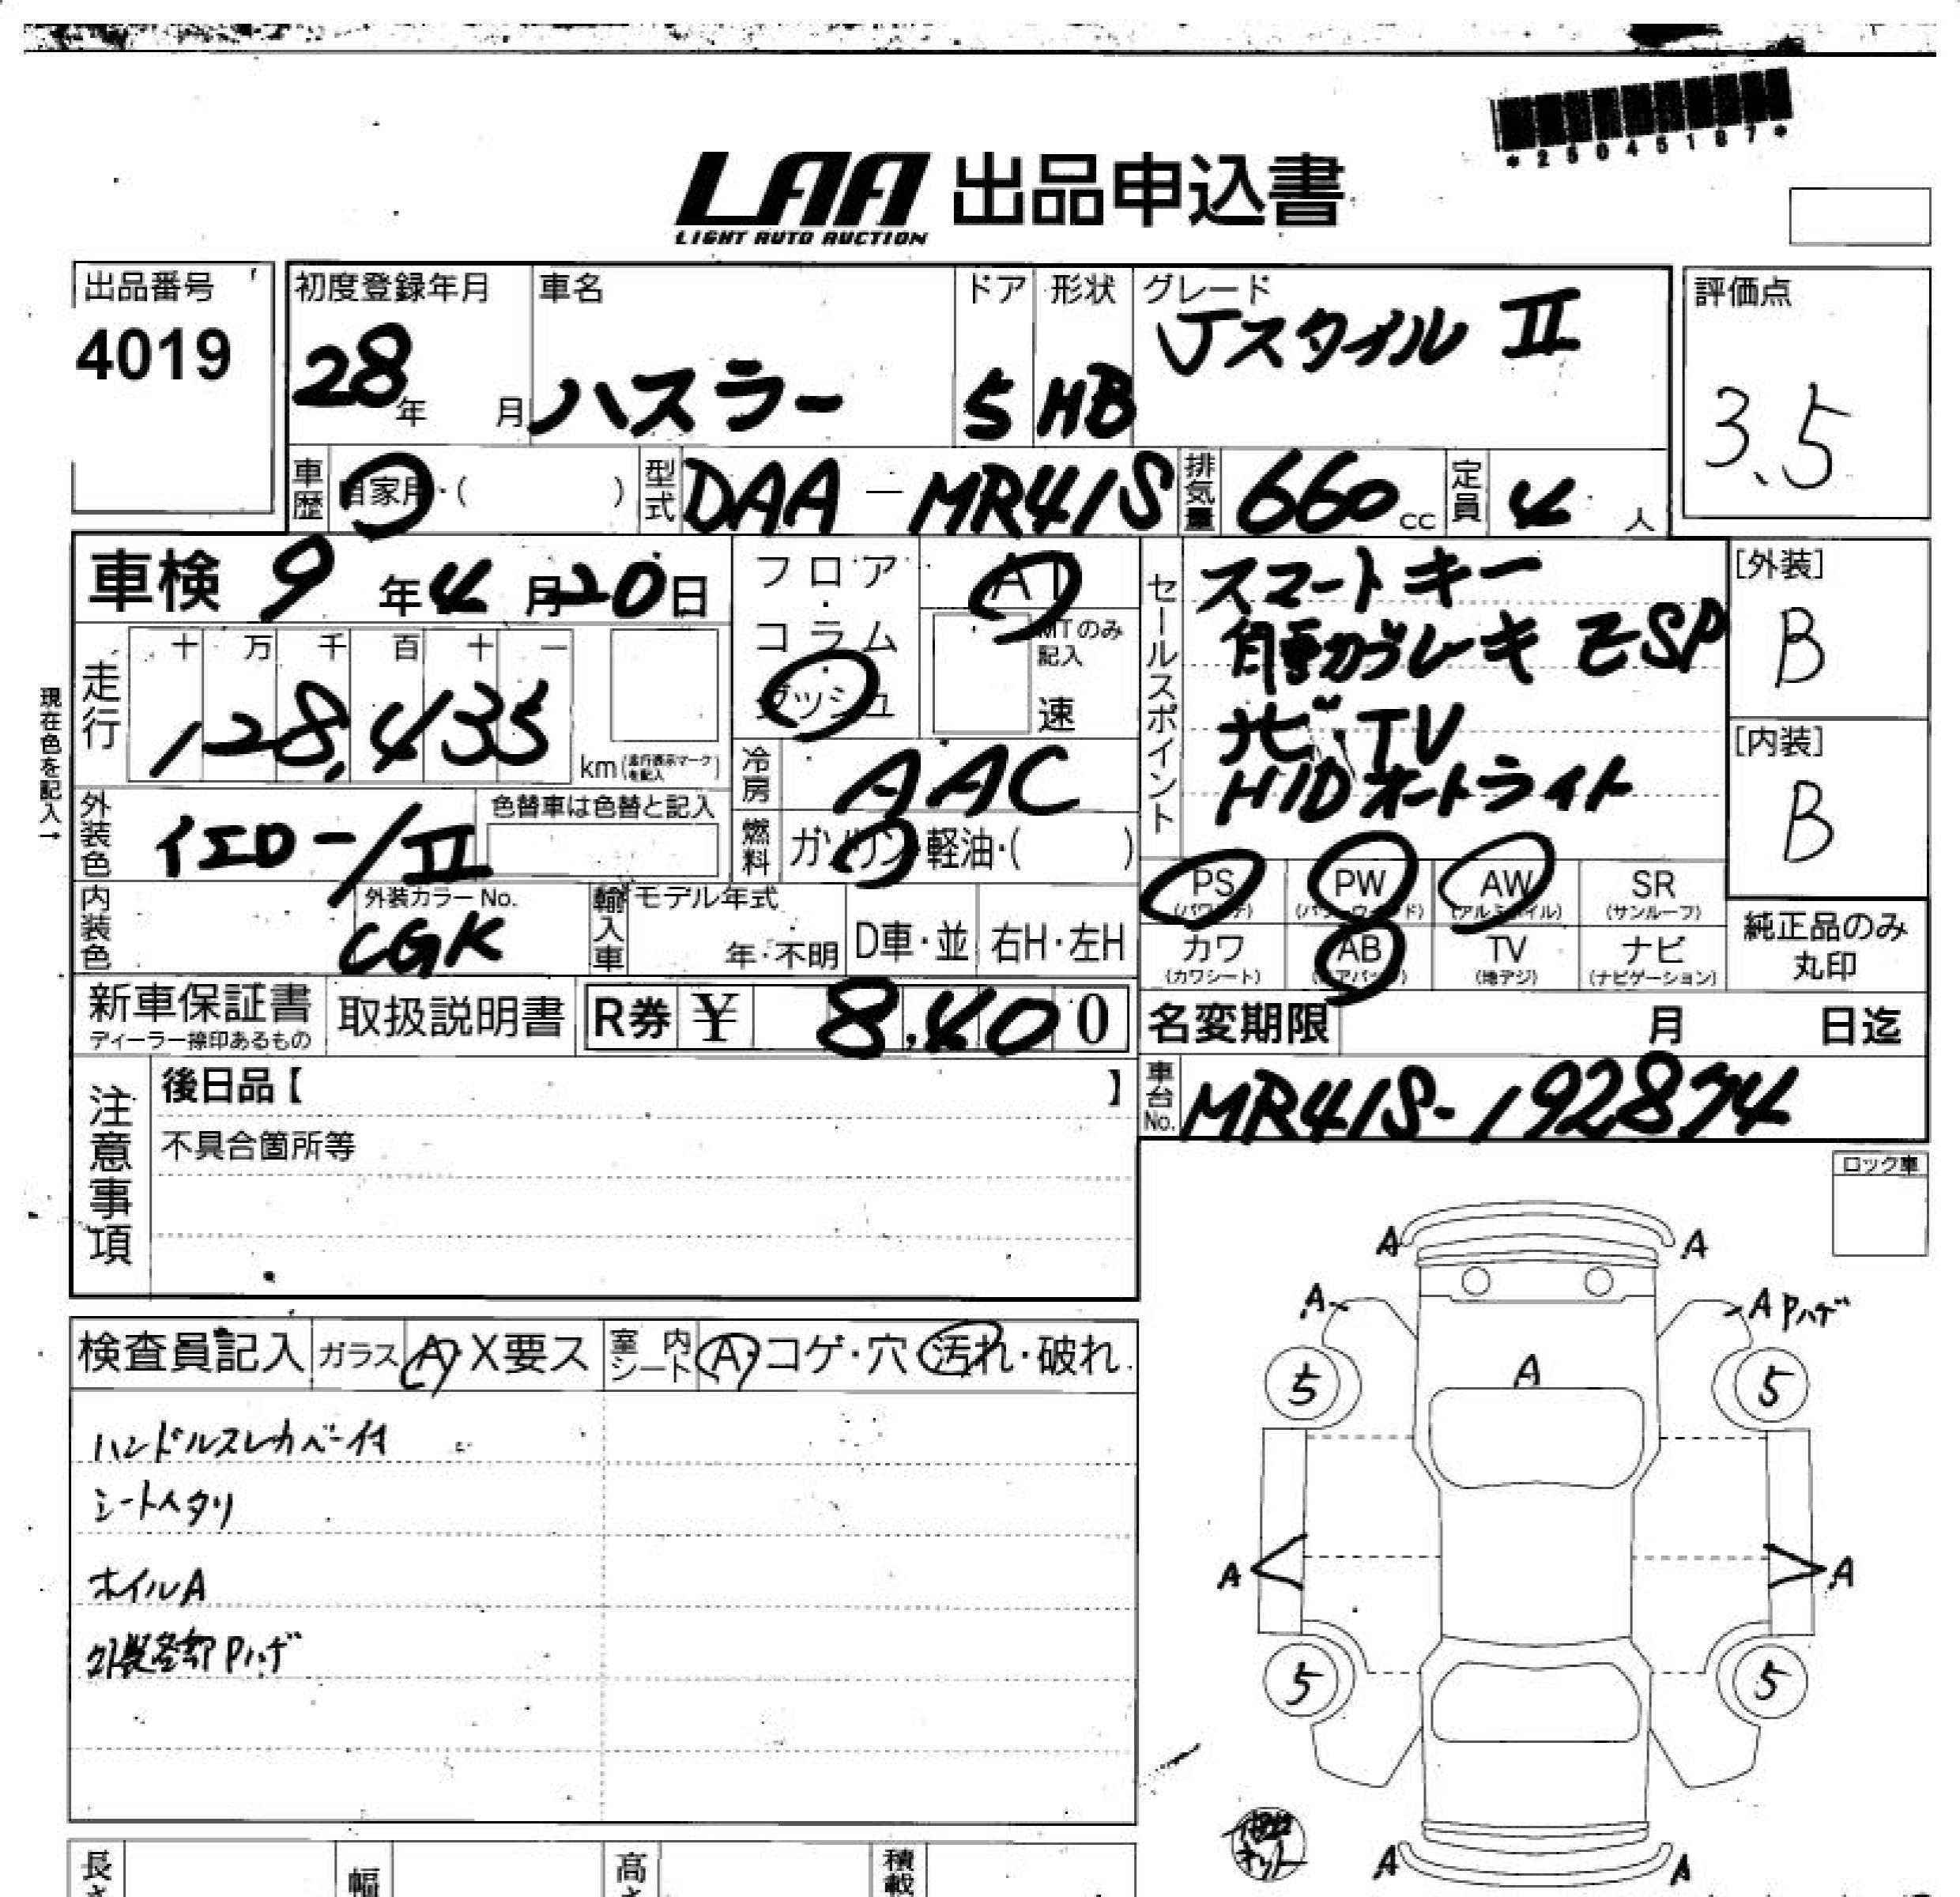 *25045187*
LAA 出品申込書
LIGHT AUTO AUCTION
出品番号
4019
初度登録年月
28年 月
車名
ハスラー
ドア
5
形状
HB
グレード
Jスタイル II
評価点
3.5
車歴 自家用・( )
型式 DAA-MR41S
排気量 660cc
定員 4人
車検 9年4月20日
フロア・コラム・ダッシュ
AT
MTのみ記入
速
セールスポイント
スマートキー
自動ブレーキ ESP
ナビ・TV
HIDオートライト
[外装]
B
[内装]
B
現在色を記入→
走行
十 万 千 百 十 一
128,435
km(走行表示マークを記入)
冷房 AAC
外装色 イエロー/II
色替車は色替と記入
燃料 ガソリン・軽油・( )
PS (パワステ)
PW (パワーウィンド)
AW (アルミホイル)
SR (サンルーフ)
カワ (カワシート)
AB (エアバッグ)
TV (地デジ)
ナビ (ナビゲーション)
純正品のみ丸印
内装色
外装カラーNo.
CGK
輸入車
モデル年式
年・不明
D車・並
右H・左H
新車保証書
ディーラー捺印あるもの
取扱説明書
R券 ¥ 8,400
名変期限 月 日迄
車台No. MR41S-192874
注意事項
後日品【 】
不具合箇所等
ロック車
検査員記入
ガラス A・X要ス
室内シート A・コゲ・穴・汚れ・破れ
ハンドルスレカバー付
シートヘタリ
ホイルA
外装各部Pハゲ
A A
A A Pハゲ
A
5 5
A A
5 5
A A
長さ
幅
高さ
積載